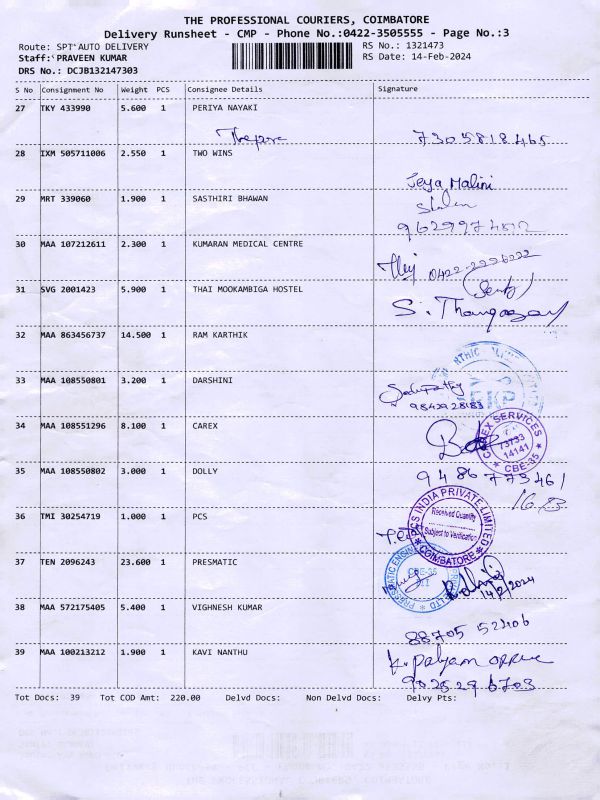 THE PROFESSIONAL COURIERS, COIMBATORE
Delivery Runsheet - CMP - Phone No.:0422-3505555 - Page No.:3
Route: SPT AUTO DELIVERY
RS No.: 1321473
Staff: PRAVEEN KUMAR
RS Date: 14-Feb-2024
DRS No.: DCJB132147303
S No Consignment No Weight PCS Consignee Details Signature
27 TKY 433990 5.600 1 PERIYA NAYAKI
7305818465
28 IXM 505711006 2.550 1 TWO WINS
Jeya Malini
29 MRT 339060 1.900 1 SASTHIRI BHAWAN
9629974812
30 MAA 107212611 2.300 1 KUMARAN MEDICAL CENTRE
0422-2226222
31 SVG 2001423 5.900 1 THAI MOOKAMBIGA HOSTEL
S. Thangaraj
32 MAA 863456737 14.500 1 RAM KARTHIK
33 MAA 108550801 3.200 1 DARSHINI
9842928183
34 MAA 108551296 8.100 1 CAREX
CAREX SERVICES
73733
14141
CBE-35
35 MAA 108550802 3.000 1 DOLLY
9486773461
36 TMI 30254719 1.000 1 PCS
PCS INDIA PRIVATE LIMITED
Received Quantity
Subject to Verification
COIMBATORE
37 TEN 2096243 23.600 1 PRESMATIC
CBE-35
14/2/2024
38 MAA 572175405 5.400 1 VIGHNESH KUMAR
88705 52406
39 MAA 100213212 1.900 1 KAVI NANTHU
K. palyam office
9025296703
Tot Docs: 39 Tot COD Amt: 220.00 Delvd Docs: Non Delvd Docs: Delvy Pts: